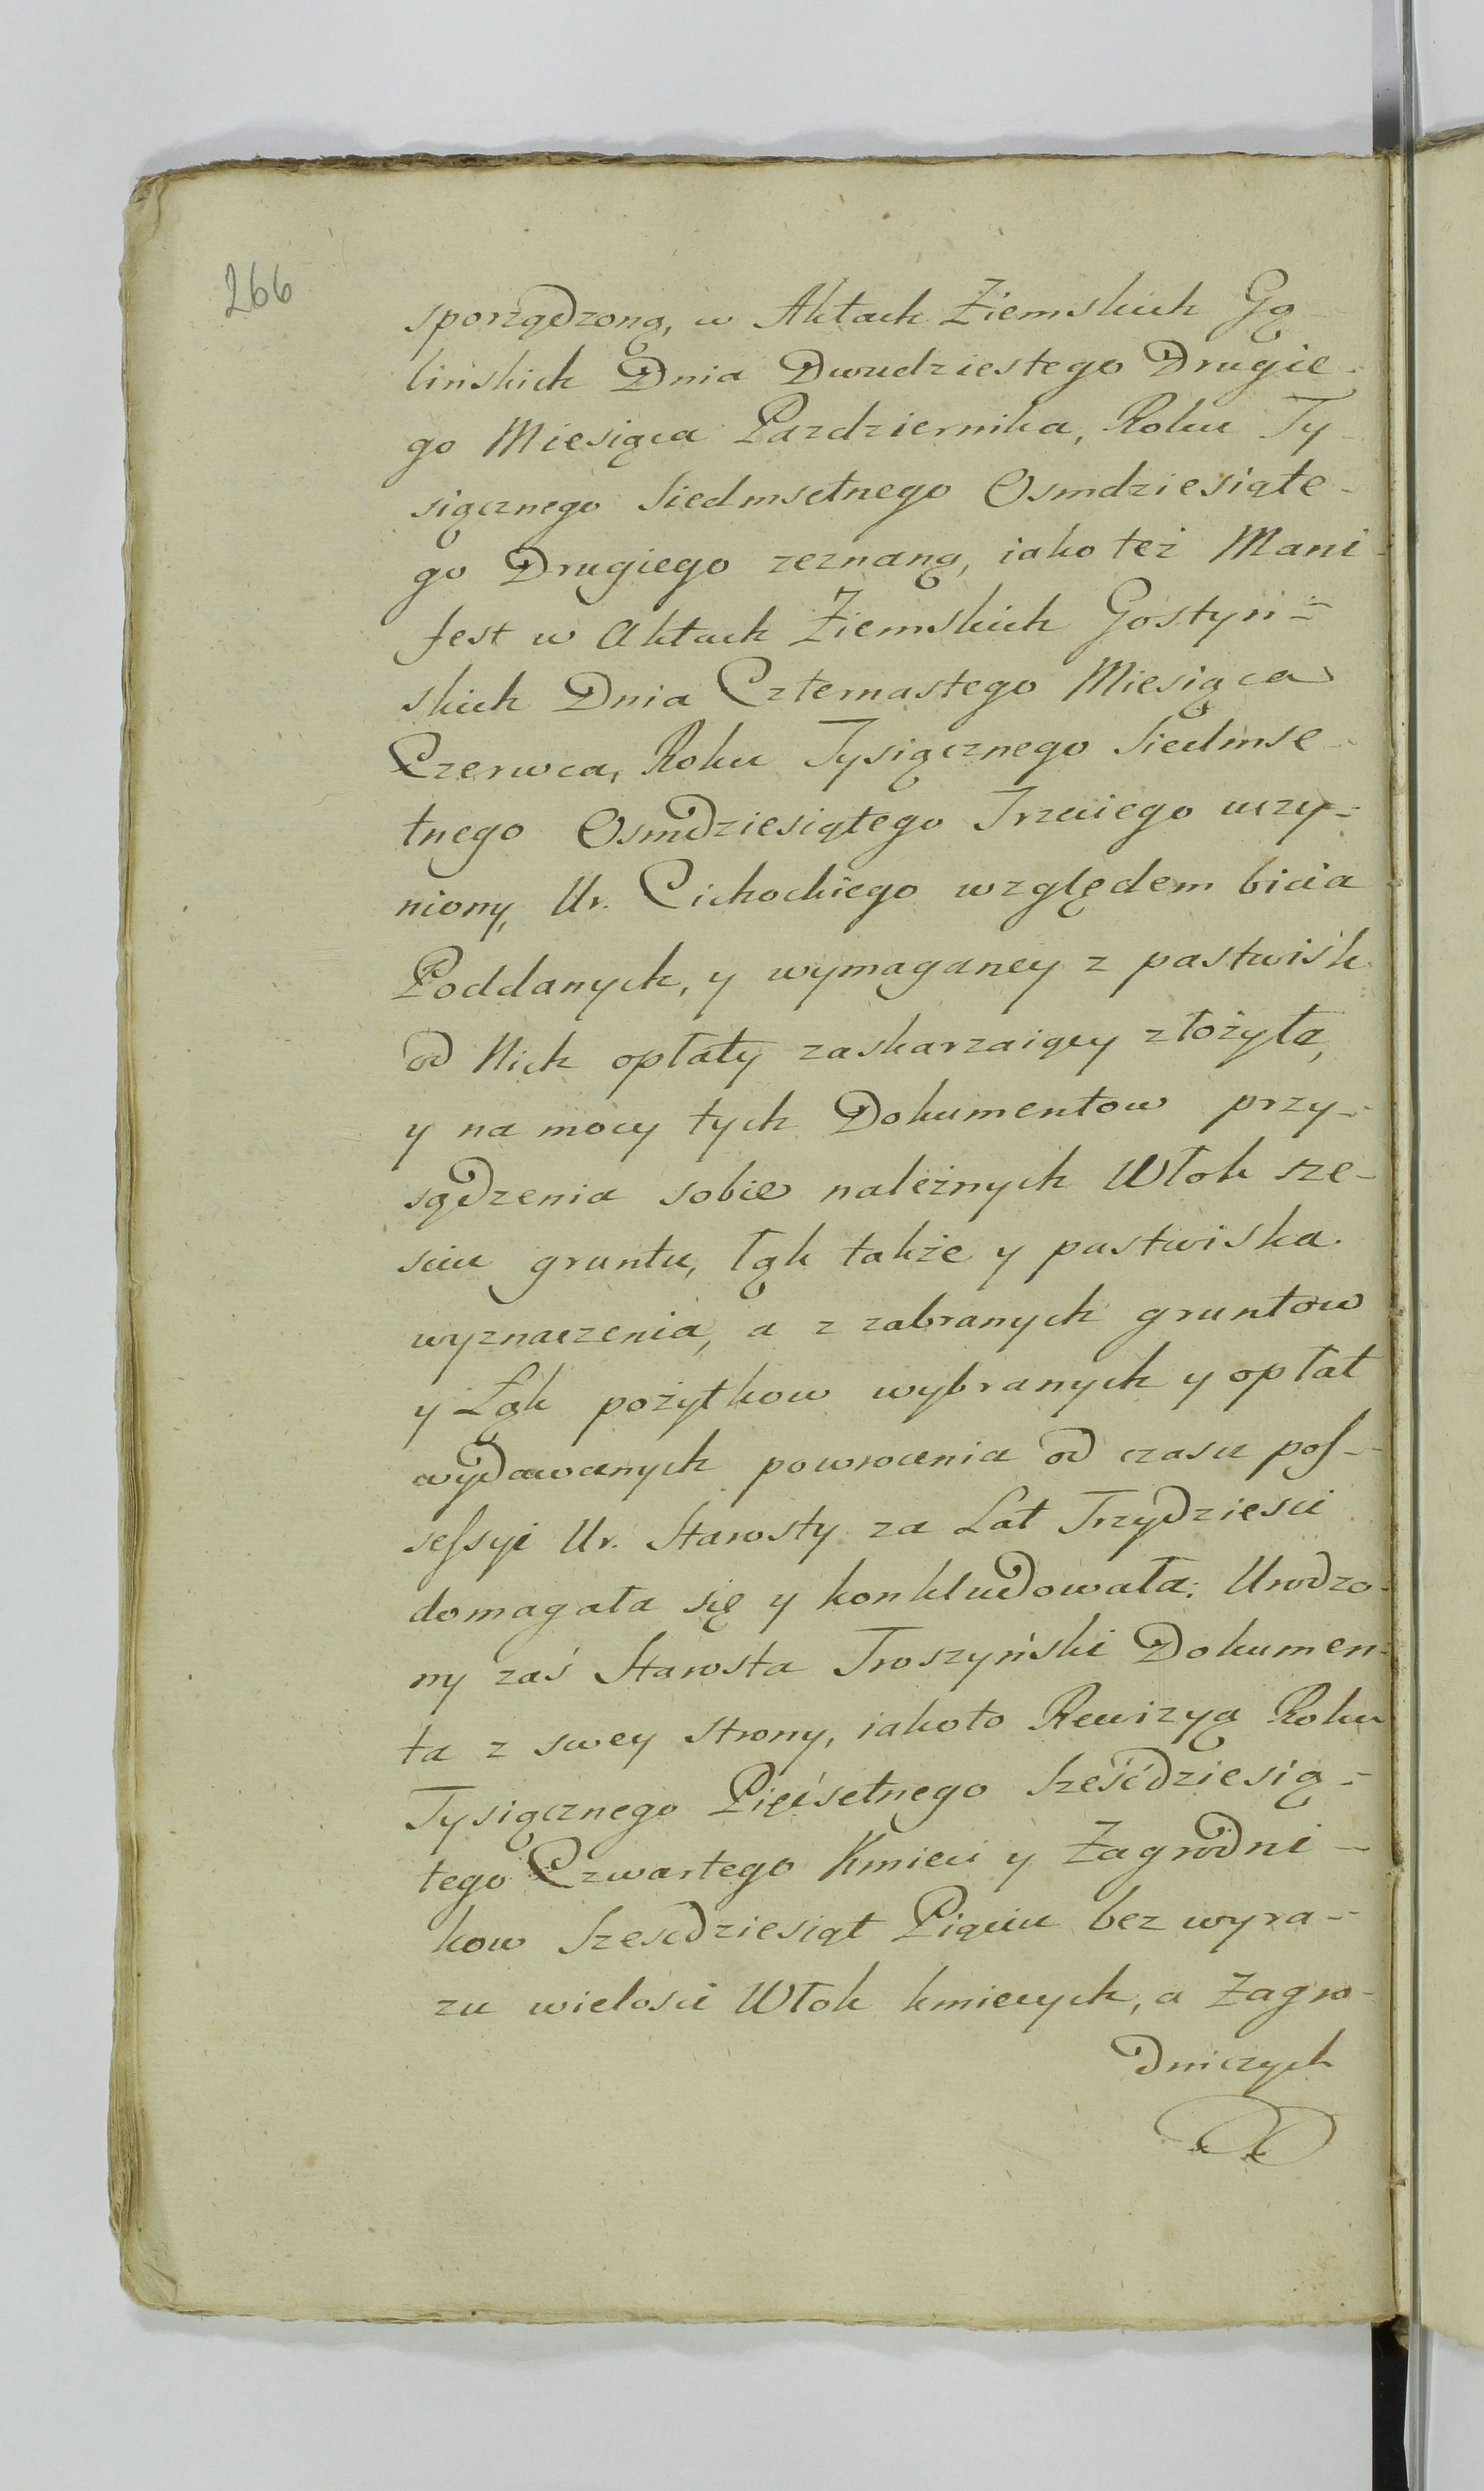 266
sporządzoną, w Aktach Ziemskich Gą
bińskich Dnia Dwudziestego Drugie-
go Miesiąca Pazdziernika, Roku Ty-
siącznego Siedmsetnego Osmdziesiąte-
go Drugiego zeznaną, iako też Mani-
fest w Aktach Ziemskich Gostyń-
skich Dnia Czternastego Miesiąca
Czerwca, Roku Tysiącznego Siedmse-
tnego Osmdziesiątego Trzeciego uczy-
niony, Ur. Cichockiego względem bicia
Poddanych, y wymaganey z pastwisk
od Nich opłaty zaskarzaiący złożyła,
y na mocy tych Dokumentow przy-
sądzenia sobie należnych Włok sze-
sciu gruntu, łąk także y pastwiska
wyznaczenia, a z zabranych gruntow
y Łąk pożytkow wybranych y opłat
wydawanych powrocenia od czasu pos-
sessyi Ur. Starosty za Lat Trzydziesci
domagała się y konkludowała: Urodzo-
ny zaś Starosta Troszyński Dokumen-
ta z swey strony, iakoto Rewizyą Roku
Tysiącznego Pięćsetnego Sześćdziesią-
tego Czwartego Kmieci y Zagrodni-
kow Szescdziesiąt Pięciu bez wyra-
zu wielosci Włok kmiecych, a Zagro-
dniczych